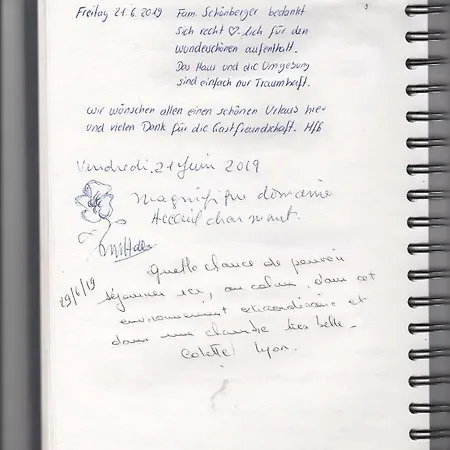 Freitag 21.6.2019 Fam. Schönberger bedankt
sich recht ♡lich für den
wunderschönen aufenthalt.
Das Haus und die Umgebung
sind einfach nur Traumhaft.
Wir wünschen allen einen schönen Urlaub hier
und vielen Dank für die Gastfreundschaft.
Vendredi 21 Juin 2019
Magnifique domaine
Accueil charmant.
Quelle chance de pouvoir
29/6/19
séjourner ici, au calme, dans cet
environnement extraordinaire et
dans une chambre très belle.
Colette Lyon.